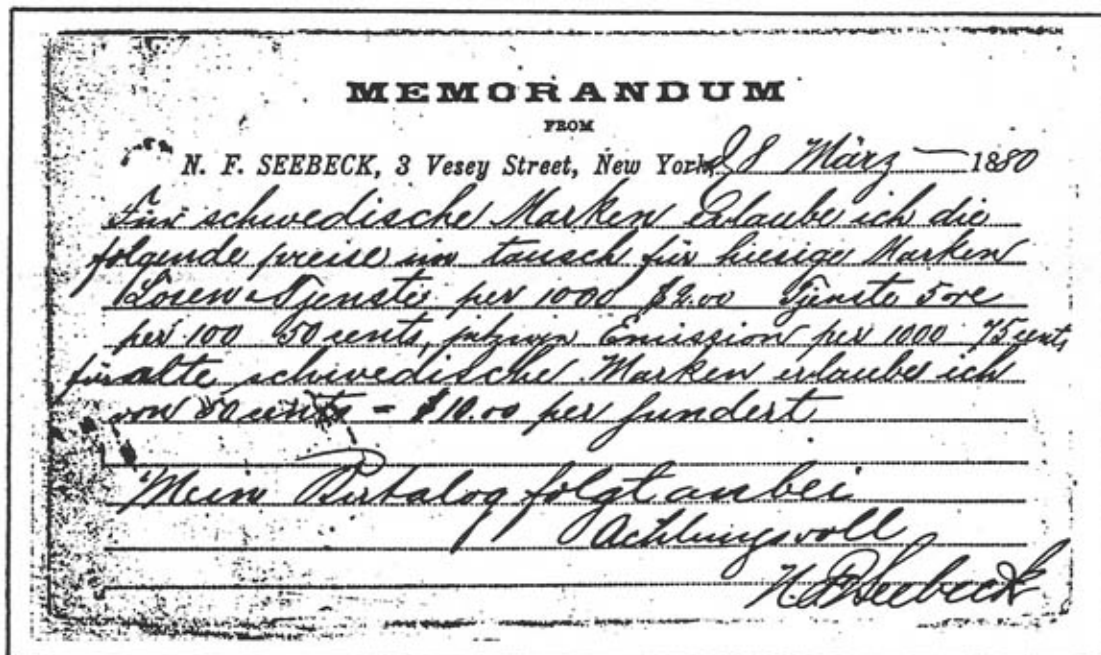 MEMORANDUM
FROM
N. F. SEEBECK, 3 Vesey Street, New York, 28 März 1880
Für schwedische Marken erlaube ich die
folgende preise im tausch für hiesige Marken
Losen & Tjenste per 1000 $2.00 Tjenste 5 ore
per 100 50 cents, Emission per 1000 75 cents,
für alte schwedische Marken erlaube ich
von 50 cents = $10.00 per hundert
Mein Katalog folgt anbei
Achtungsvoll
N. F. Seebeck